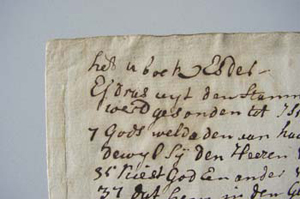 het u boek Esdes
Esdras uyt den Stamm
werd gesonden tot
7 Gods weldaden aen
dewyl Sy den Heeren
35 Niest God En ander
37 dat hem in den